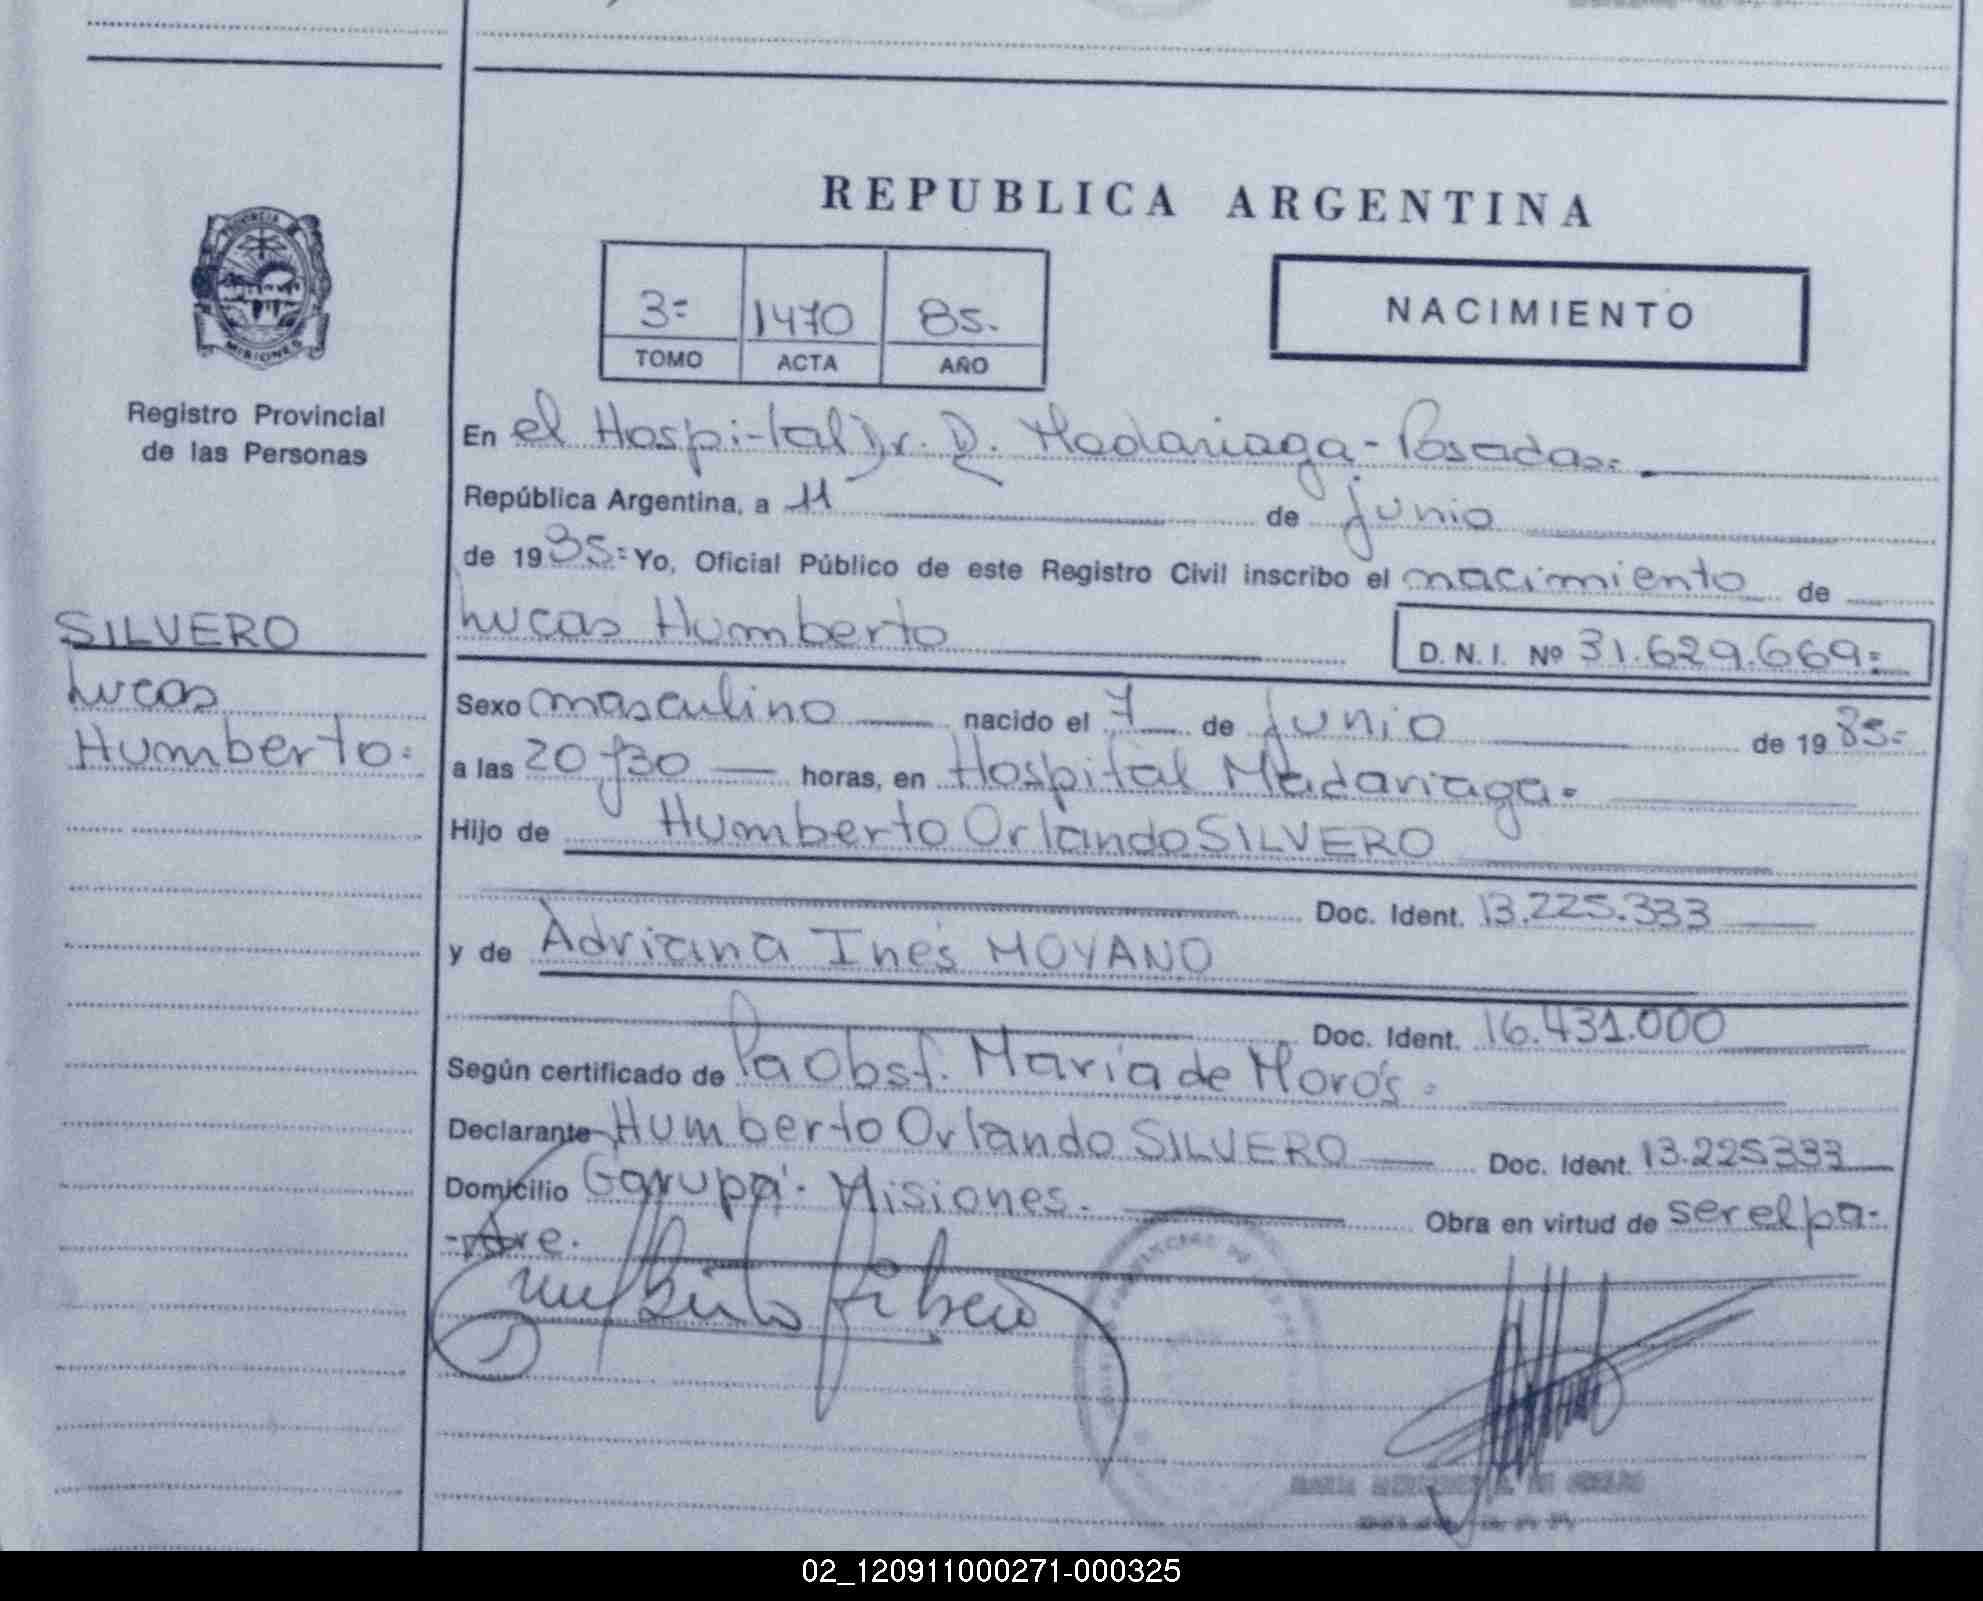 REPUBLICA ARGENTINA
PROVINCIA
MISIONES
Registro Provincial
de las Personas
3= 1470 85.
TOMO ACTA AÑO
NACIMIENTO
En el Hospital Dr. D. Madariaga - Posadas.=
República Argentina, a 11 de junio
de 1985.= Yo, Oficial Público de este Registro Civil inscribo el nacimiento de
Lucas Humberto
D. N. I. Nº 31.629.669.=
SILVERO
Lucas
Humberto.=
Sexo masculino nacido el 7 de junio de 1985.=
a las 20 y 30 horas, en Hospital Madariaga.=
Hijo de Humberto Orlando SILVERO
Doc. Ident. 13.225.333
y de Adriana Inés MOYANO
Doc. Ident. 16.431.000
Según certificado de la Obst. María de Moros.=
Declarante Humberto Orlando SILVERO Doc. Ident. 13.225333
Domicilio Garupá. Misiones. Obra en virtud de ser el pa-
-dre.
02_120911000271-000325